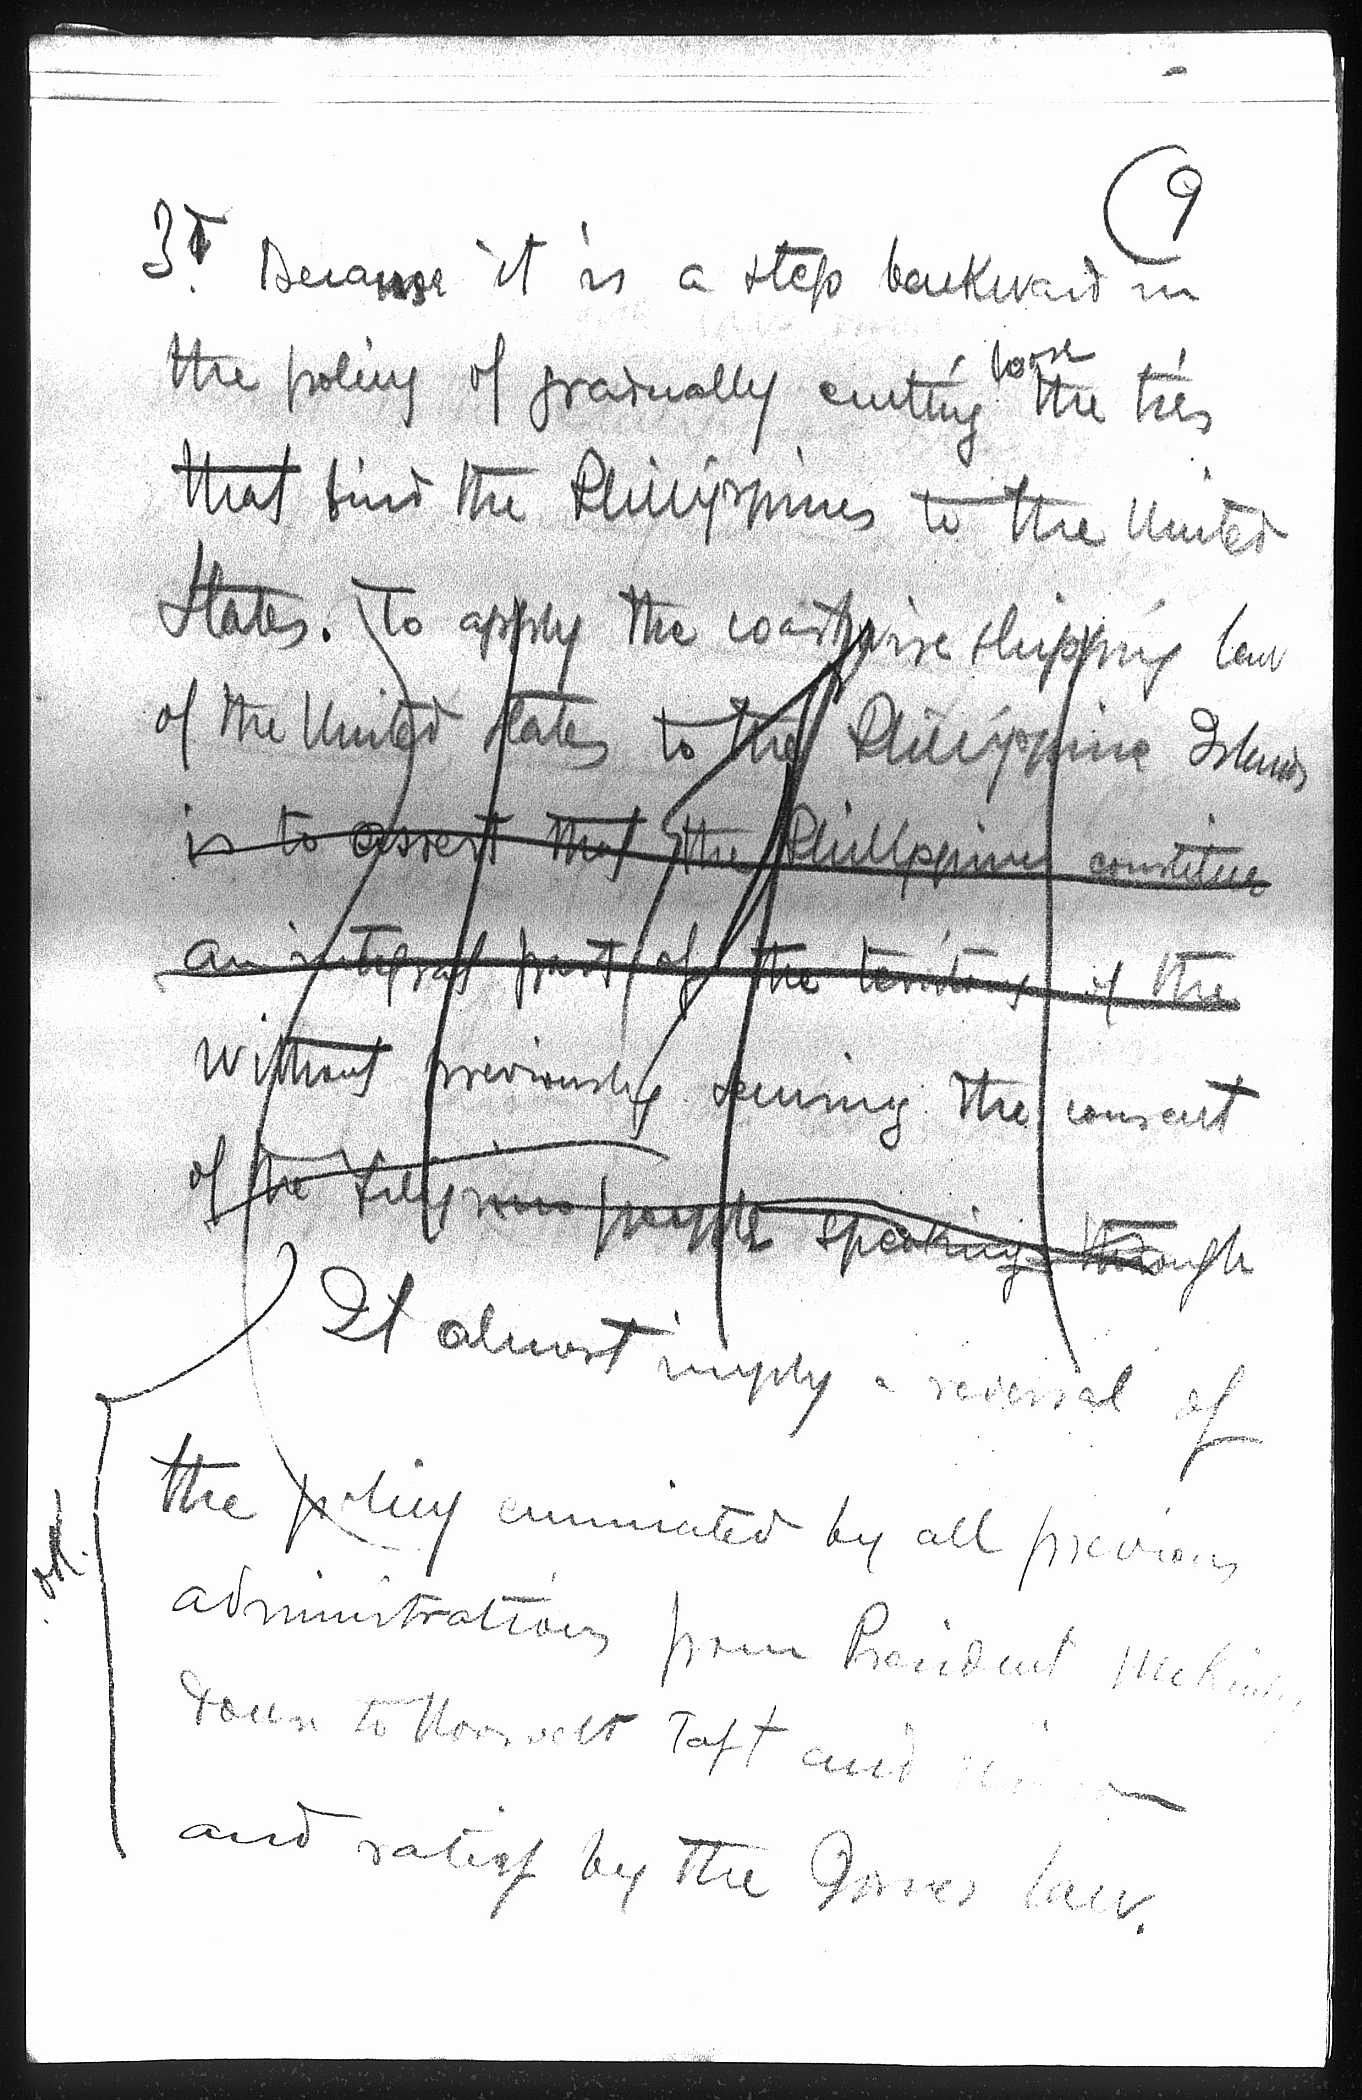 9
3d. Because it is a step backward in
the policy of gradually cutting loose the ties
that bind the Phillippines to the United
States. To apply the coastwise shipping law
of the United States to the Phillippine Islands
is to assert that the Phillippines constitues
an integral part of the territory of the
without previously securing the consent
of the Filipino people speaking through
It almost imply a reversal of
the policy enunciated by all previous
ok.
administrations from President McKinley
down to Roosvelt Taft and Wilson
and ratify by the Jones law.